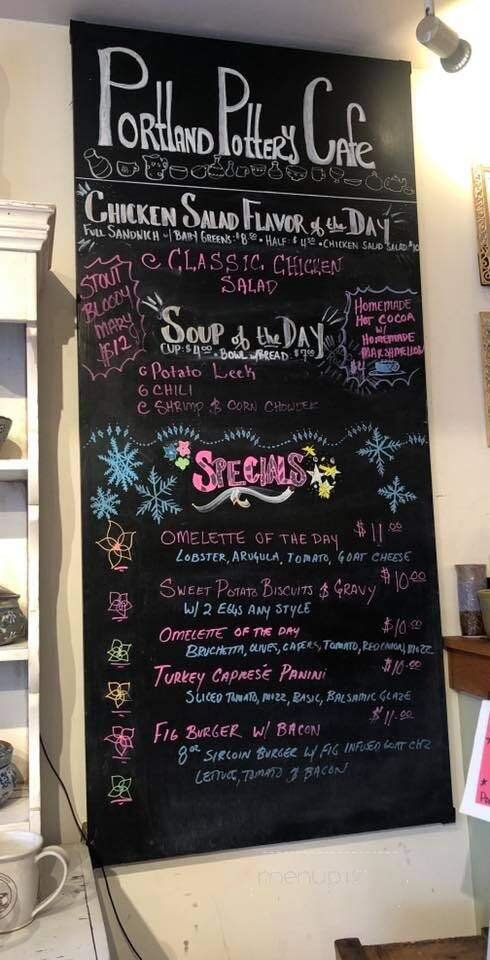 PORTLAND POTTERY CAFE
CHICKEN SALAD FLAVOR of the DAY
FULL SANDWICH w/ BABY GREENS: $8.50 • HALF: $4.50 • CHICKEN SALAD SALAD $10
C CLASSIC CHICKEN
SALAD
STOUT
BLOODY
MARY
$12
SOUP of the DAY
CUP: $4.00 • BOWL w/BREAD: $7.00
HOMEMADE
HOT COCOA
W/
HOMEMADE
MARSHMELLOW
$4
G POTATO LEEK
G CHILI
C SHRIMP & CORN CHOWDER
SPECIALS
OMELETTE OF THE DAY $11.00
LOBSTER, ARUGULA, TOMATO, GOAT CHEESE
SWEET POTATO BISCUITS & GRAVY $10.00
W/ 2 EGGS ANY STYLE
OMELETTE OF THE DAY $10.00
BRUCHETTA, OLIVES, CAPERS, TOMATO, RED ONION, MOZZ
TURKEY CAPRESE PANINI $10.00
SLICED TOMATO, MOZZ, BASIL, BALSAMIC GLAZE
FIG BURGER W/ BACON $11.00
8oz SIRLOIN BURGER W/ FIG INFUSED GOAT CHZ
LETTUCE, TOMATO & BACON